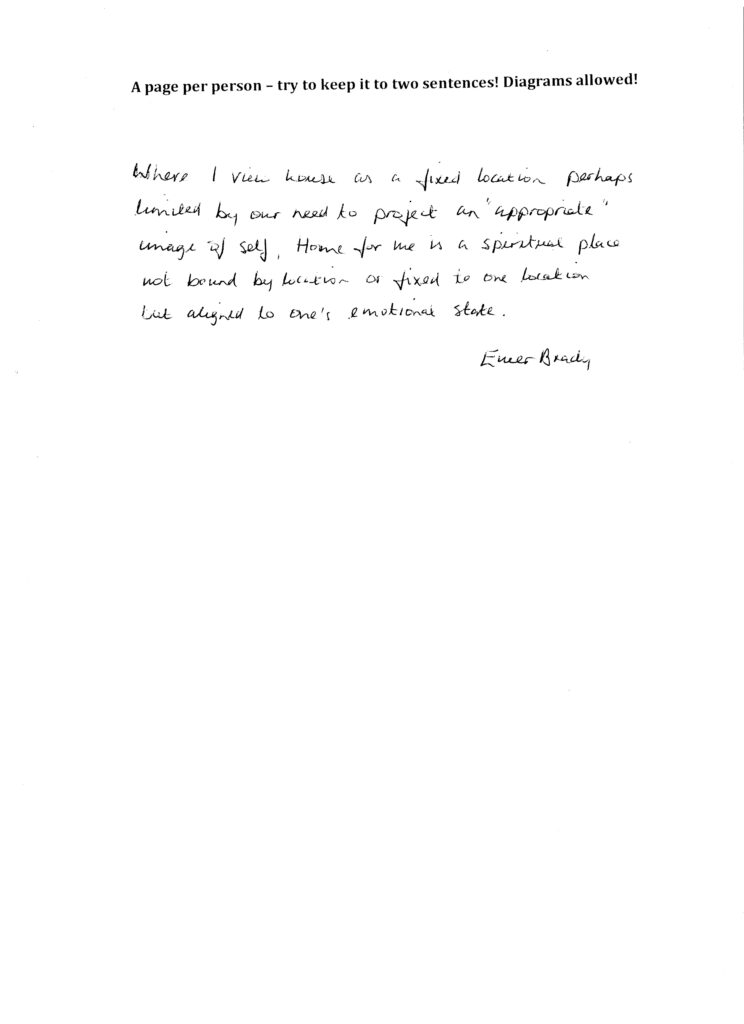 A page per person – try to keep it to two sentences! Diagrams allowed!
Where I view house as a fixed location perhaps
limited by our need to project an "appropriate"
image of self, Home for me is a spiritual place
not bound by location or fixed to one location
but aligned to one's emotional state.
Emer Brady